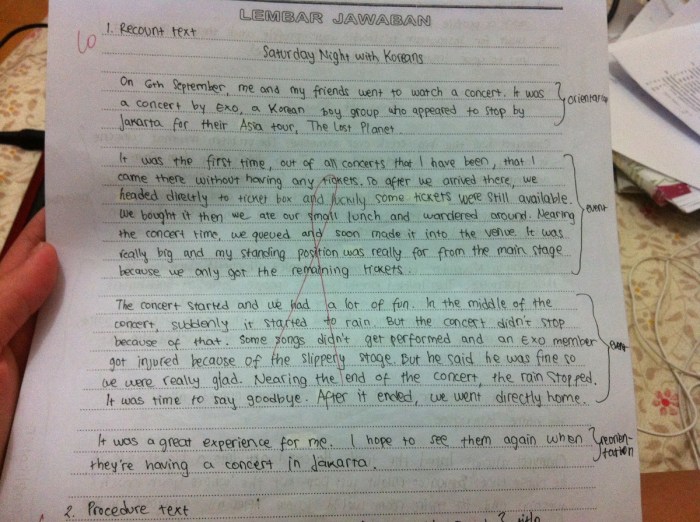 LEMBAR JAWABAN
1. Recount text
Saturday Night with Koreans
On 6th September, me and my friends went to watch a concert. It was
a concert by EXO, a Korean boy group who appeared to stop by
Jakarta for their Asia tour, The Lost Planet
orientation
It was the first time, out of all concerts that I have been, that I
came there without having any tickets. So after we arrived there, we
headed directly to ticket box and luckily some tickets were still available.
We bought it then we ate our small lunch and wandered around. Nearing
the concert time, we queued and soon made it into the venue. It was
really big and my standing position was really far from the main stage
because we only got the remaining tickets.
event
The concert started and we had a lot of fun. In the middle of the
concert, suddenly it started to rain. But the concert didn't stop
because of that. Some songs didn't get performed and an EXO member
got injured because of the slippery stage. But he said he was fine so
we were really glad. Nearing the end of the concert, the rain stopped.
It was time to say goodbye. After it ended, we went directly home.
event
It was a great experience for me. I hope to see them again when
they're having a concert in Jakarta.
reorien-
tation
2. Procedure text
title